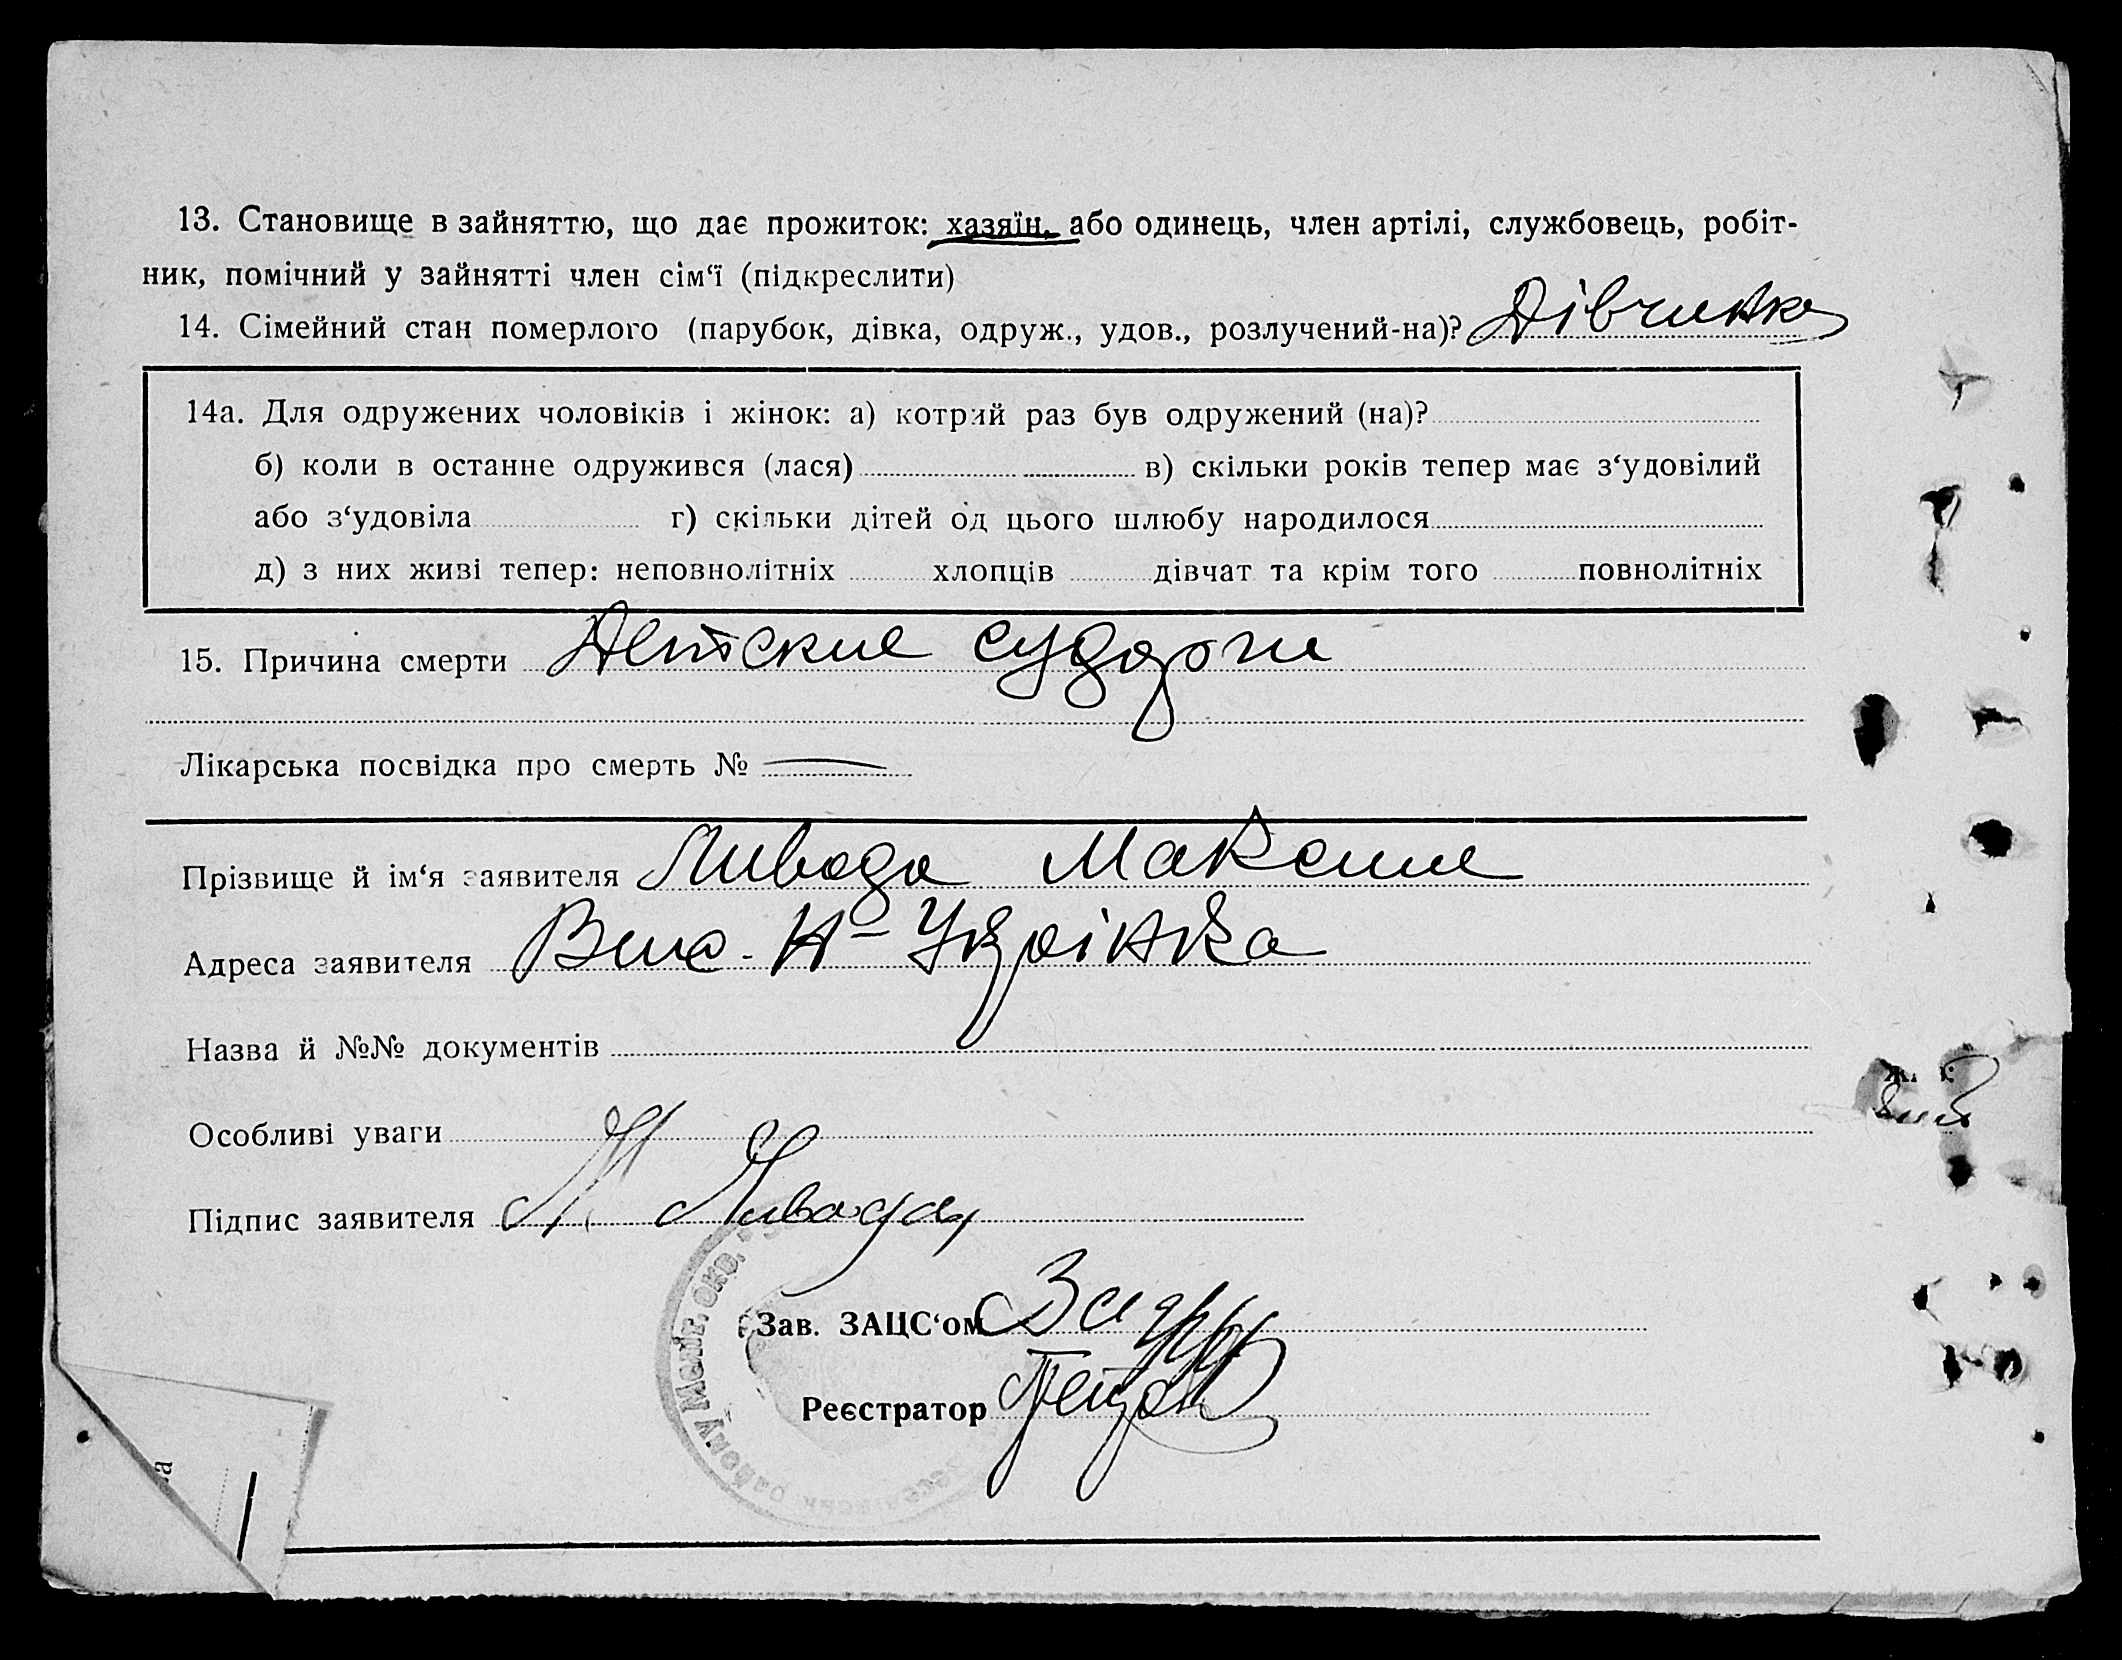 13. Становище в зайняттю, що дає прожиток: хазяїн, або одинець, член артілі, службовець, робіт-
ник, помічний у зайнятті член сім‘ї (підкреслити)
14. Сімейний стан померлого (парубок, дівка, одруж., удов., розлучений-на)? Дівчинка
14а. Для одружених чоловіків і жінок: а) котрий раз був одружений (на)?
б) коли в останнє одружився (лася) в) скільки років тепер має з‘удовілий
або з‘удовіла г) скільки дітей од цього шлюбу народилося
д) з них живі тепер: неповнолітніх хлопців дівчат та крім того повнолітніх
15. Причина смерти Детские судороги
Лікарська посвідка про смерть № —
Прізвище й ім‘я заявителя Ливада Максим
Адреса заявителя Вис. Н-Украінка
Назва й №№ документів
Особливі уваги
Підпис заявителя М. Ливада
Зав. ЗАЦС‘ом
Реєстратор
району Меліт. окр.